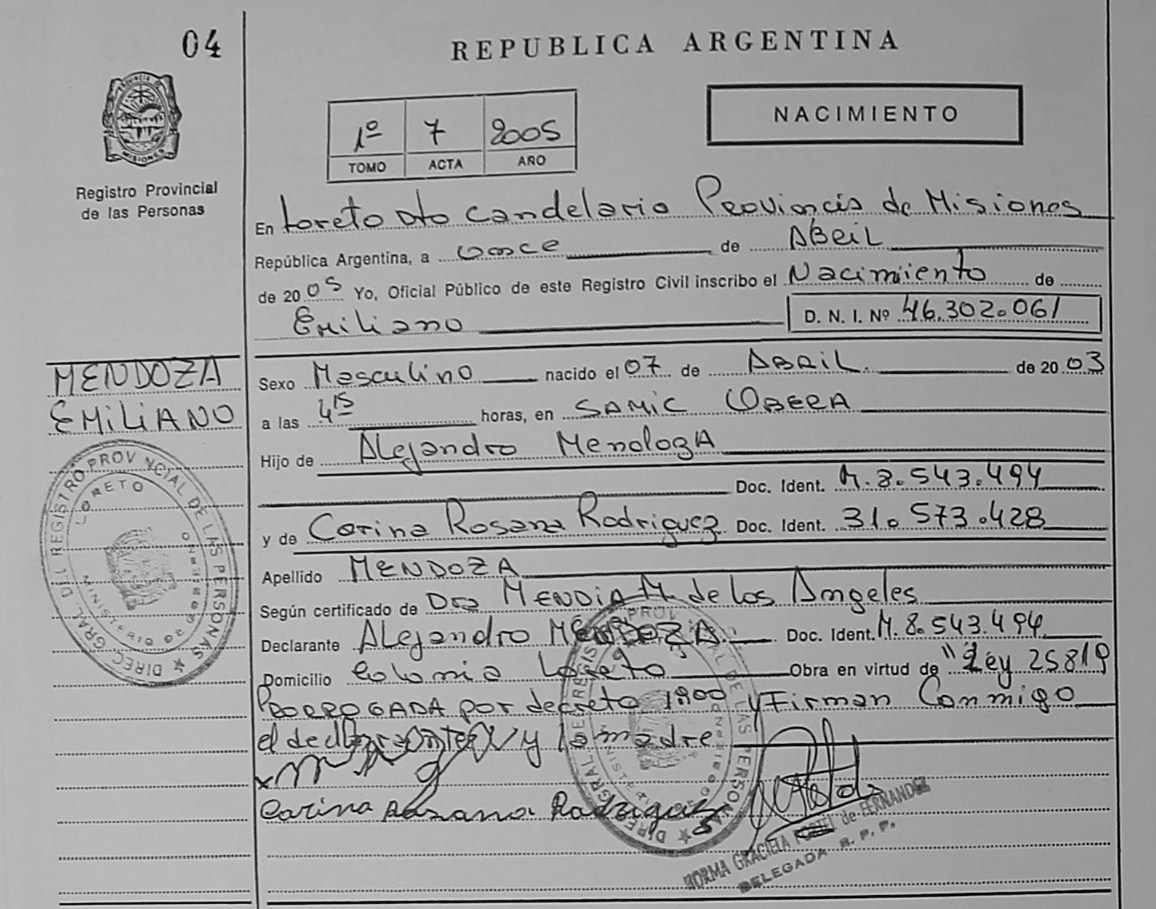 04
REPUBLICA ARGENTINA
PROVINCIA DE MISIONES
Registro Provincial
de las Personas
1º 7 2005
TOMO ACTA AÑO
NACIMIENTO
En Loreto Dto Candelaria Provincia de Misiones
República Argentina, a once de ABRIL
de 2005 Yo, Oficial Público de este Registro Civil inscribo el Nacimiento de
Emiliano D. N. I. Nº 46.302.061
MENDOZA
EMILIANO
Sexo Masculino nacido el 07 de ABRIL de 2003
a las 4 15 horas, en SAMIC OBERA
Hijo de Alejandro Mendoza
Doc. Ident. M.8.543.494
y de Carina Rosana Rodriguez Doc. Ident. 31.573.428
Apellido MENDOZA
Según certificado de Dra MENDIA M. de los Angeles
Declarante Alejandro MENDOZA Doc. Ident. M.8.543.494
Domicilio Colonia Loreto Obra en virtud de "Ley 25819
PRORROGADA por decreto 1900 y Firman Conmigo
el declarante y la madre
Carina Rosana Rodriguez
NORMA GRACIELA de FERNANDEZ
DELEGADA R. P. P.
DIREC. GRAL. DEL REGISTRO PROVINCIAL DE LAS PERSONAS
LORETO
MINISTERIO DE GOBIERNO